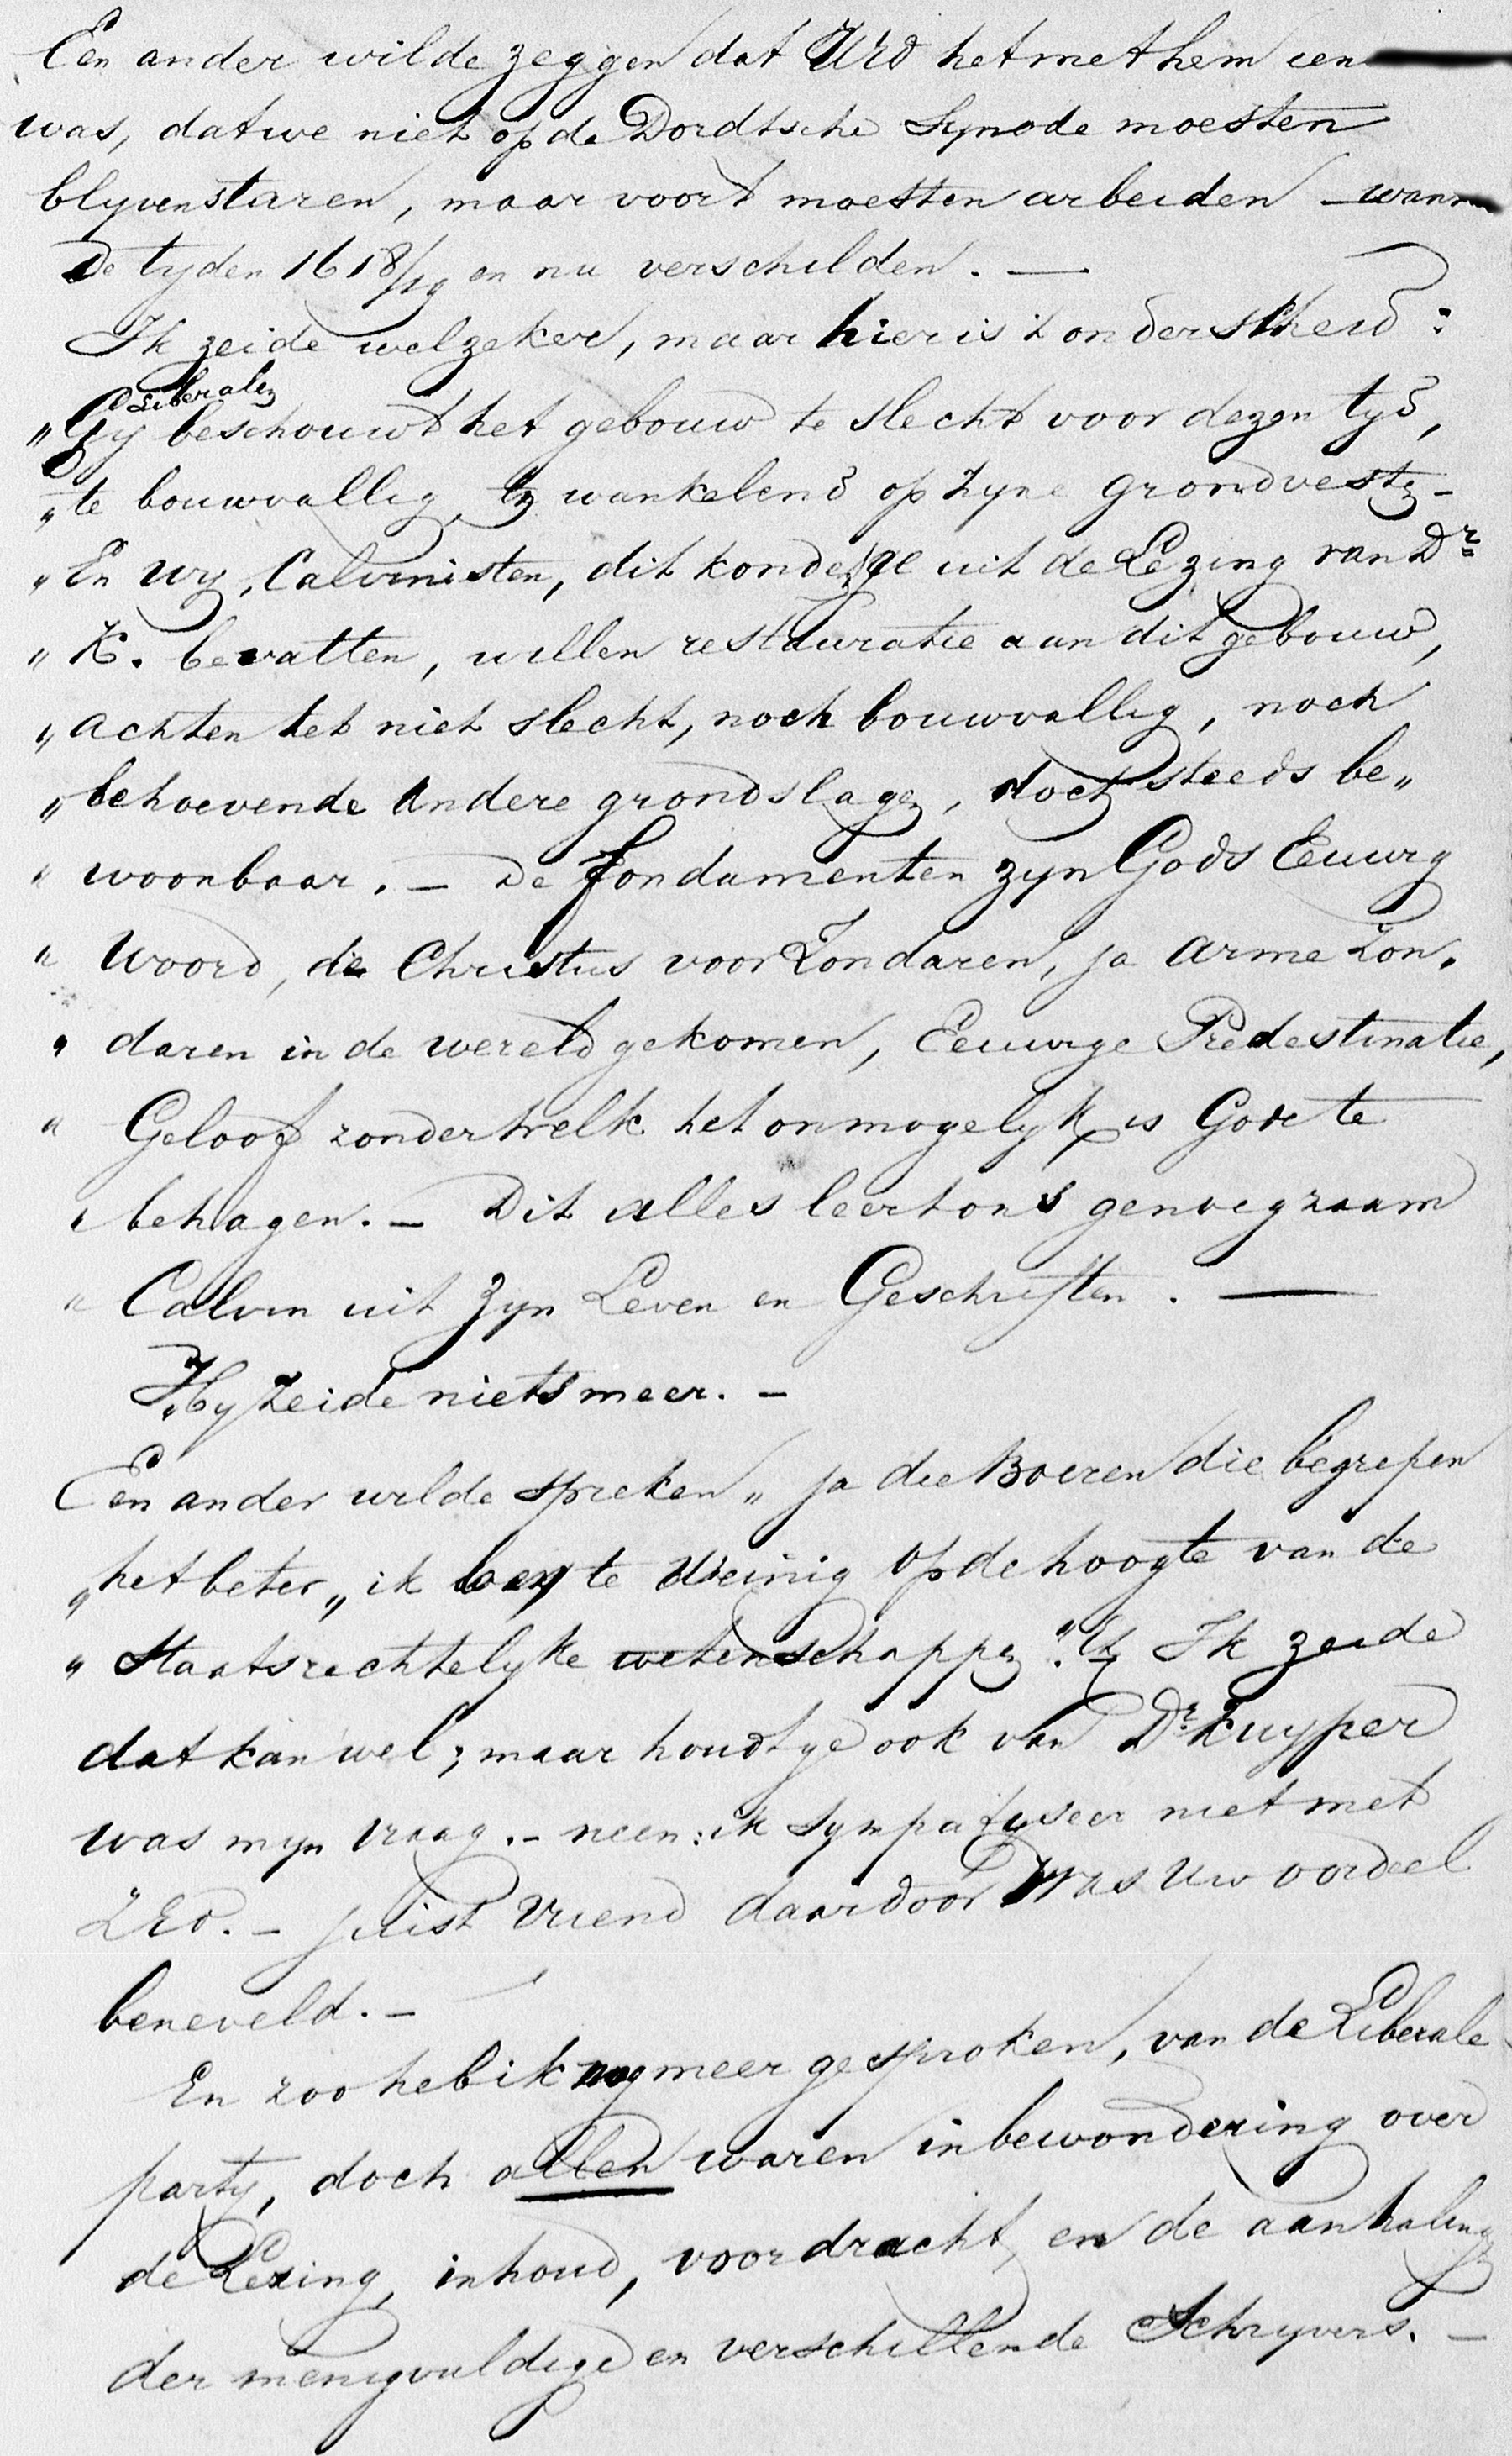 Een ander wilde zeggen dat UEd het met hem een
was, dat we niet op de Dordtsche Synode moesten
blyven staren, maar voort moesten arbeiden –
De tyden 1618/19 en nu verschilden. —
Ik zeide wel zeker, maar hier is 't onderscheid:
Liberalen
„Gy beschouwt het gebouw te slecht voor dezen tyd,
„te bouwvallig, en wankelend op zyne grondvesten –
„En wy, Calvinisten, dit konde ge uit de Lezing van Dr
„K. bevatten, willen restauratie aan dit gebouw,
„achten het niet slecht, noch bouwvallig, noch
„behoevende andere grondslagen, doch steeds be„
„woonbaar. – De fondamenten zyn Gods Eeuwig
„Woord, de Christus voor Zondaren, ja arme zon„
„daren in de wereld gekomen, Eeuwige Predestinatie,
„Geloof zonder 'twelk het onmogelyk is Gode te
„behagen. – Dit alles leert ons genoegzaam
„Calvin uit zyn Leven en Geschriften. —
Hy zeide niets meer. –
Een ander wilde spreken „ja die Boeren die begrepen
„het beter„ ik ben te weinig op de hoogte van de
„Staatsrechtelyke wetenschappen." Ik zeide
dat kan wel; maar houdt ge ook van Dr. Kuyper
was myn vraag. – neen: ik sympatyseer niet met
ZEd. – juist Vriend daardoor was Uw oordeel
beneveld. –
En zoo heb ik nog meer gesproken, van de Liberale
party, doch allen waren in bewondering over
de Lezing, inhoud, voordracht, en de aanhaling
der menigvuldige en verschillende Schryvers. –